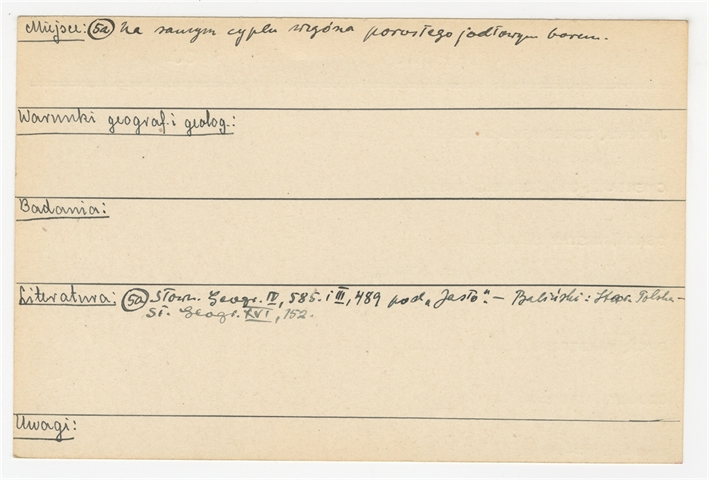 Miejsce: (5a) na samym cyplu wzgórza porosłego jodłowym borem.
Warunki geograf. i geolog.:
Badania:
Literatura: (5a) Słown. Geogr. IV, 585. i III, 489 pod „Jasło". — Baliński: Star. Polska —
Sł. Geogr. XVI, 152.
Uwagi: